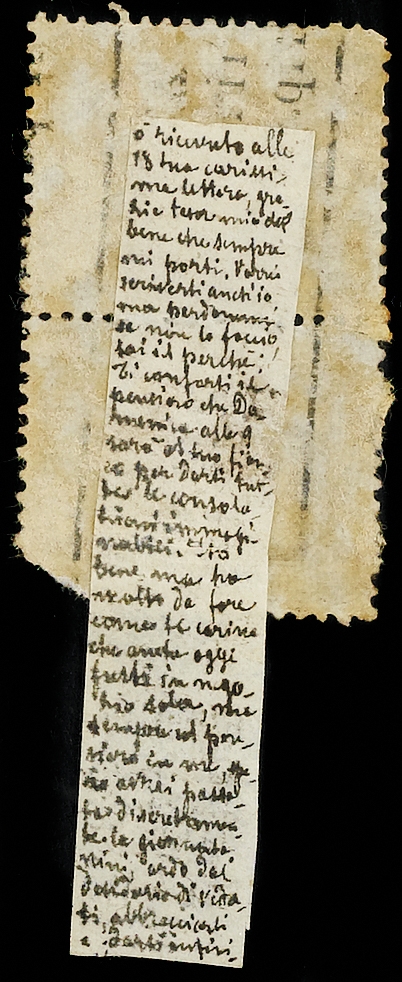 ò ricevuto alle
18 tua carissi-
ma lettera, gra-
zie tesor mio del
bene che sempre
mi porti. Vorrei
scriverti anch'io
ma perdonami
se non lo faccio
sai il perché;
Ti conforti il
pensiero che Do
menica alle 9
sarò al tuo fian-
co per darti tut-
te le consola
zioni immagi-
nabili. Sto
bene, ma ho
molto da fare
come te carina
che anche oggi
fusti in nego-
zio sola, ma
sempre col pen-
siero in me,
passa-
to discretamen-
te la giornata
Ninì, ardo dal
desiderio di
ti, abbracciarti
e darti infini-